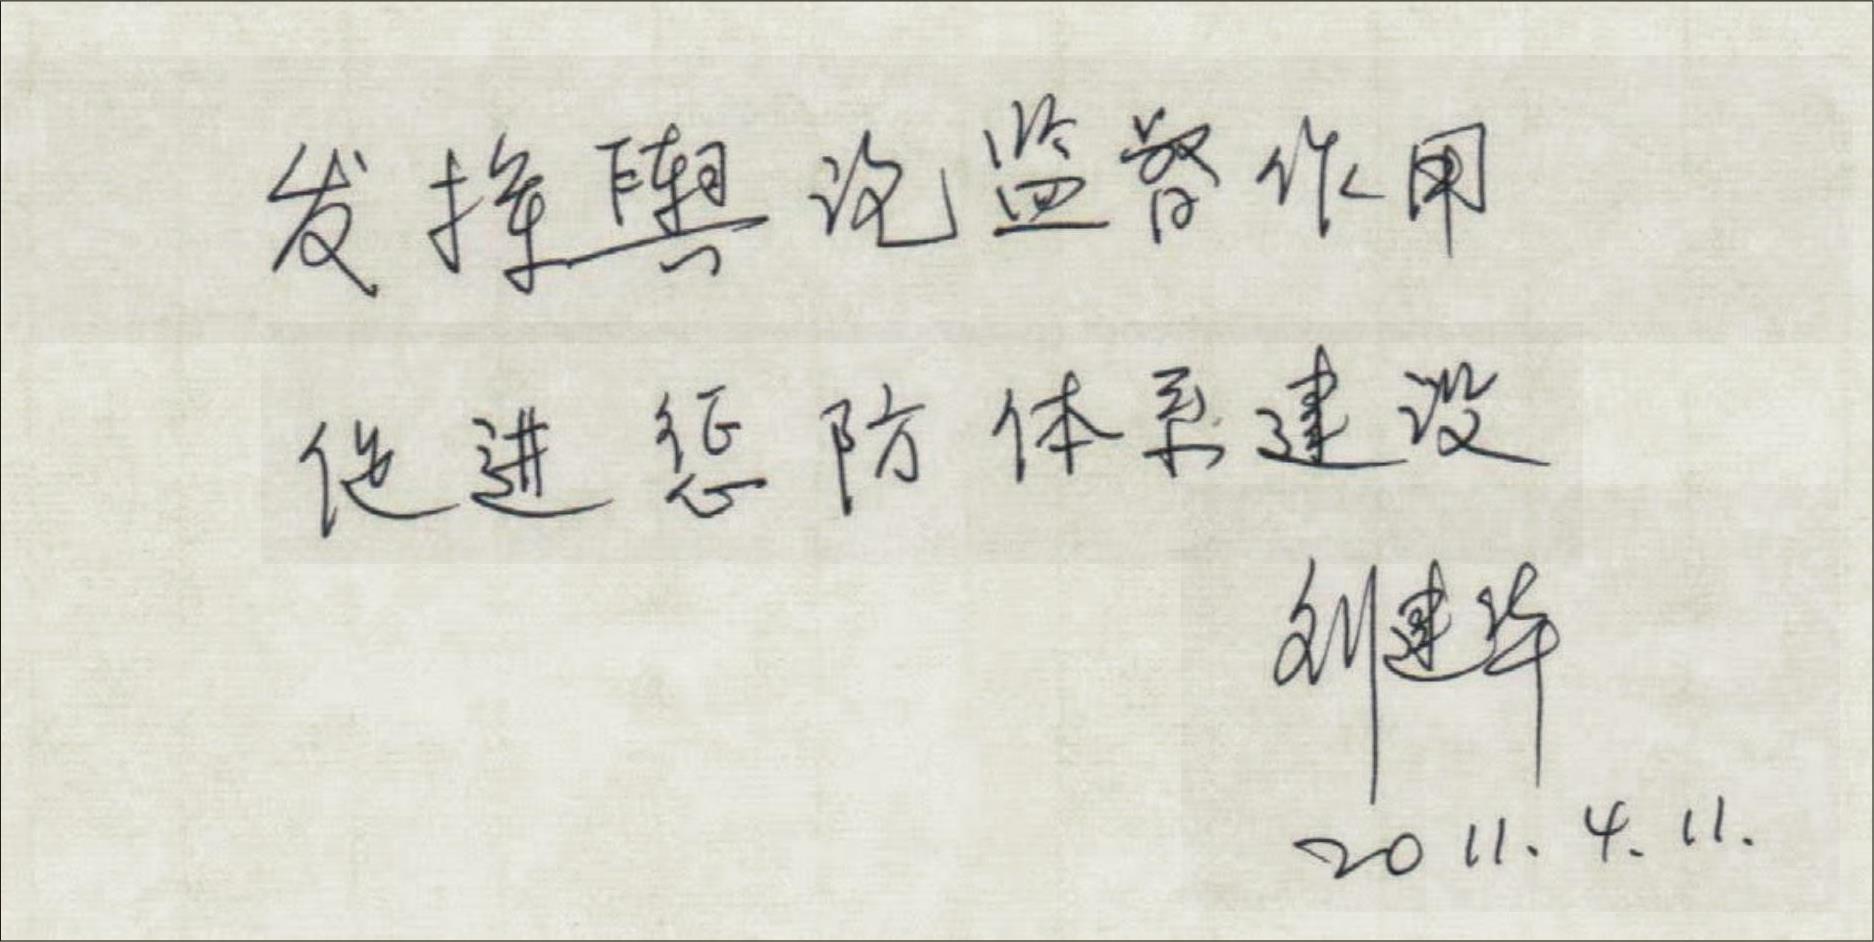 发挥舆论监督作用
促进惩防体系建设
刘建华
2011.4.11.